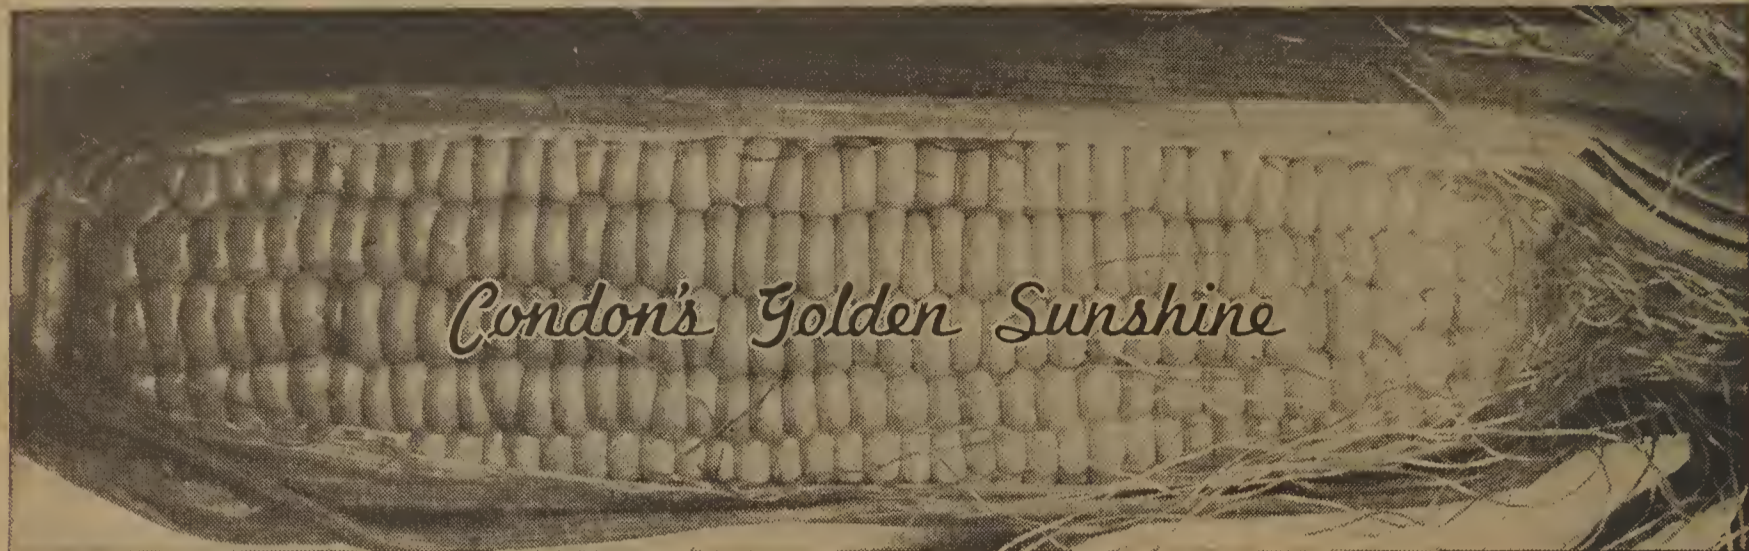 Condon's Golden Sunshine